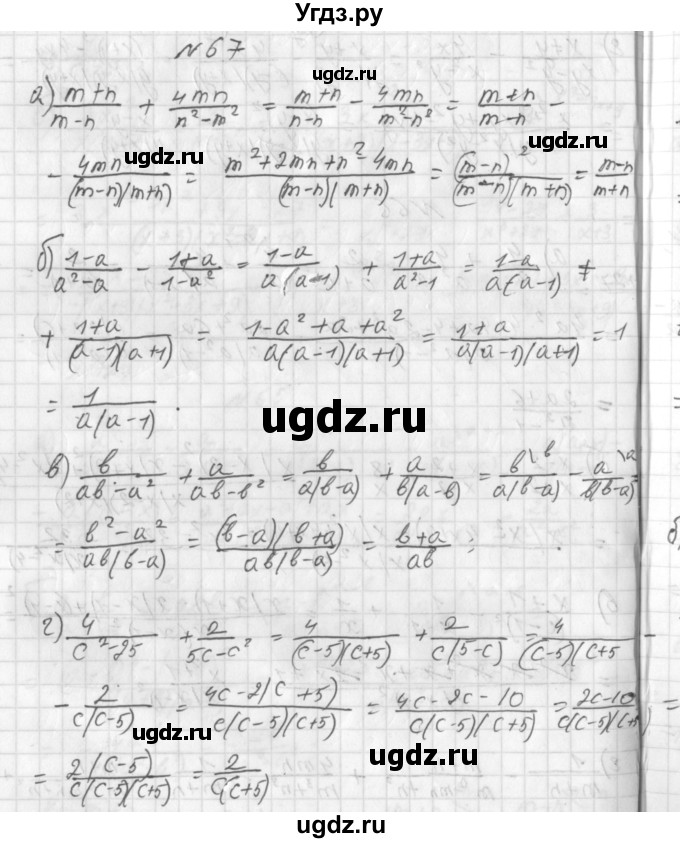 Угдз.ру
№67
а) (m+n)/(m-n) + 4mn/(n²-m²) = (m+n)/(n-n) - 4mn/(m²-n²) = (m+n)/(m-n) -
ugdz.ru
ugdz.ru
- 4mn/((m-n)(m+n)) = (m²+2mn+n²-4mn)/((m-n)(m+n)) = (m-n)²/((m-n)(m+n)) = (m-n)/(m+n)
ugdz.ru
ugdz.ru
б) (1-a)/(a²-a) - (1+a)/(1-a²) = (1-a)/(a(a-1)) + (1+a)/(a²-1) = (1-a)/(a(a-1)) +
+ (1+a)/((a-1)(a+1)) = (1-a²+a+a²)/(a(a-1)(a+1)) = (1+a)/(a(a-1)(a+1)) = 1
= 1/(a(a-1)).
ugdz.ru
ugdz.ru
в) в/(aв-a²) + a/(aв-в²) = в/(a(в-a)) + a/(в(a-в)) = в\в/(a(в-a)) - a\a/(в(в-a)) =
= (в²-a²)/(aв(в-a)) = (в-a)(в+a)/(aв(в-a)) = (в+a)/(aв);
б)
ugdz.ru
ugdz.ru
г) 4/(c²-25) + 2/(5c-c²) = 4/((c-5)(c+5)) + 2/(c(5-c)) = 4/((c-5)(c+5 -
- 2/(c(c-5)) = (4c-2(c+5))/(c(c-5)(c+5)) = (4c-2c-10)/(c(c-5)(c+5)) = (2c-10)/(c(c-5)(c+5)) =
ugdz.ru
ugdz.ru
= 2(c-5)/(c(c-5)(c+5)) = 2/(c(c+5))
ugdz.ru